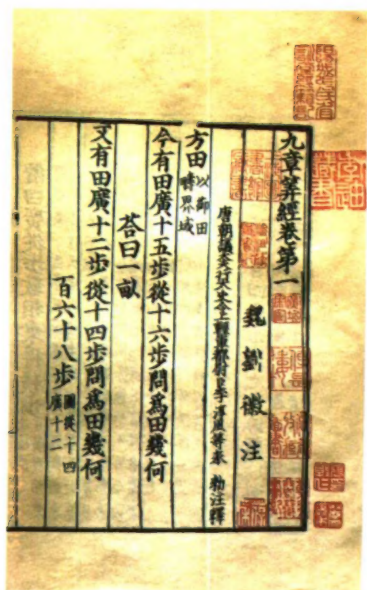 九章筭經卷第一
魏 劉 徽 注
唐朝議大夫行太史令上輕車都尉臣李淳風等奉 勑注釋
方田 以御田
疇界域
今有田廣十五步從十六步問爲田幾何
荅曰一畝
又有田廣十二步從十四步問爲田幾何
百六十八步 圖從十四
廣十二